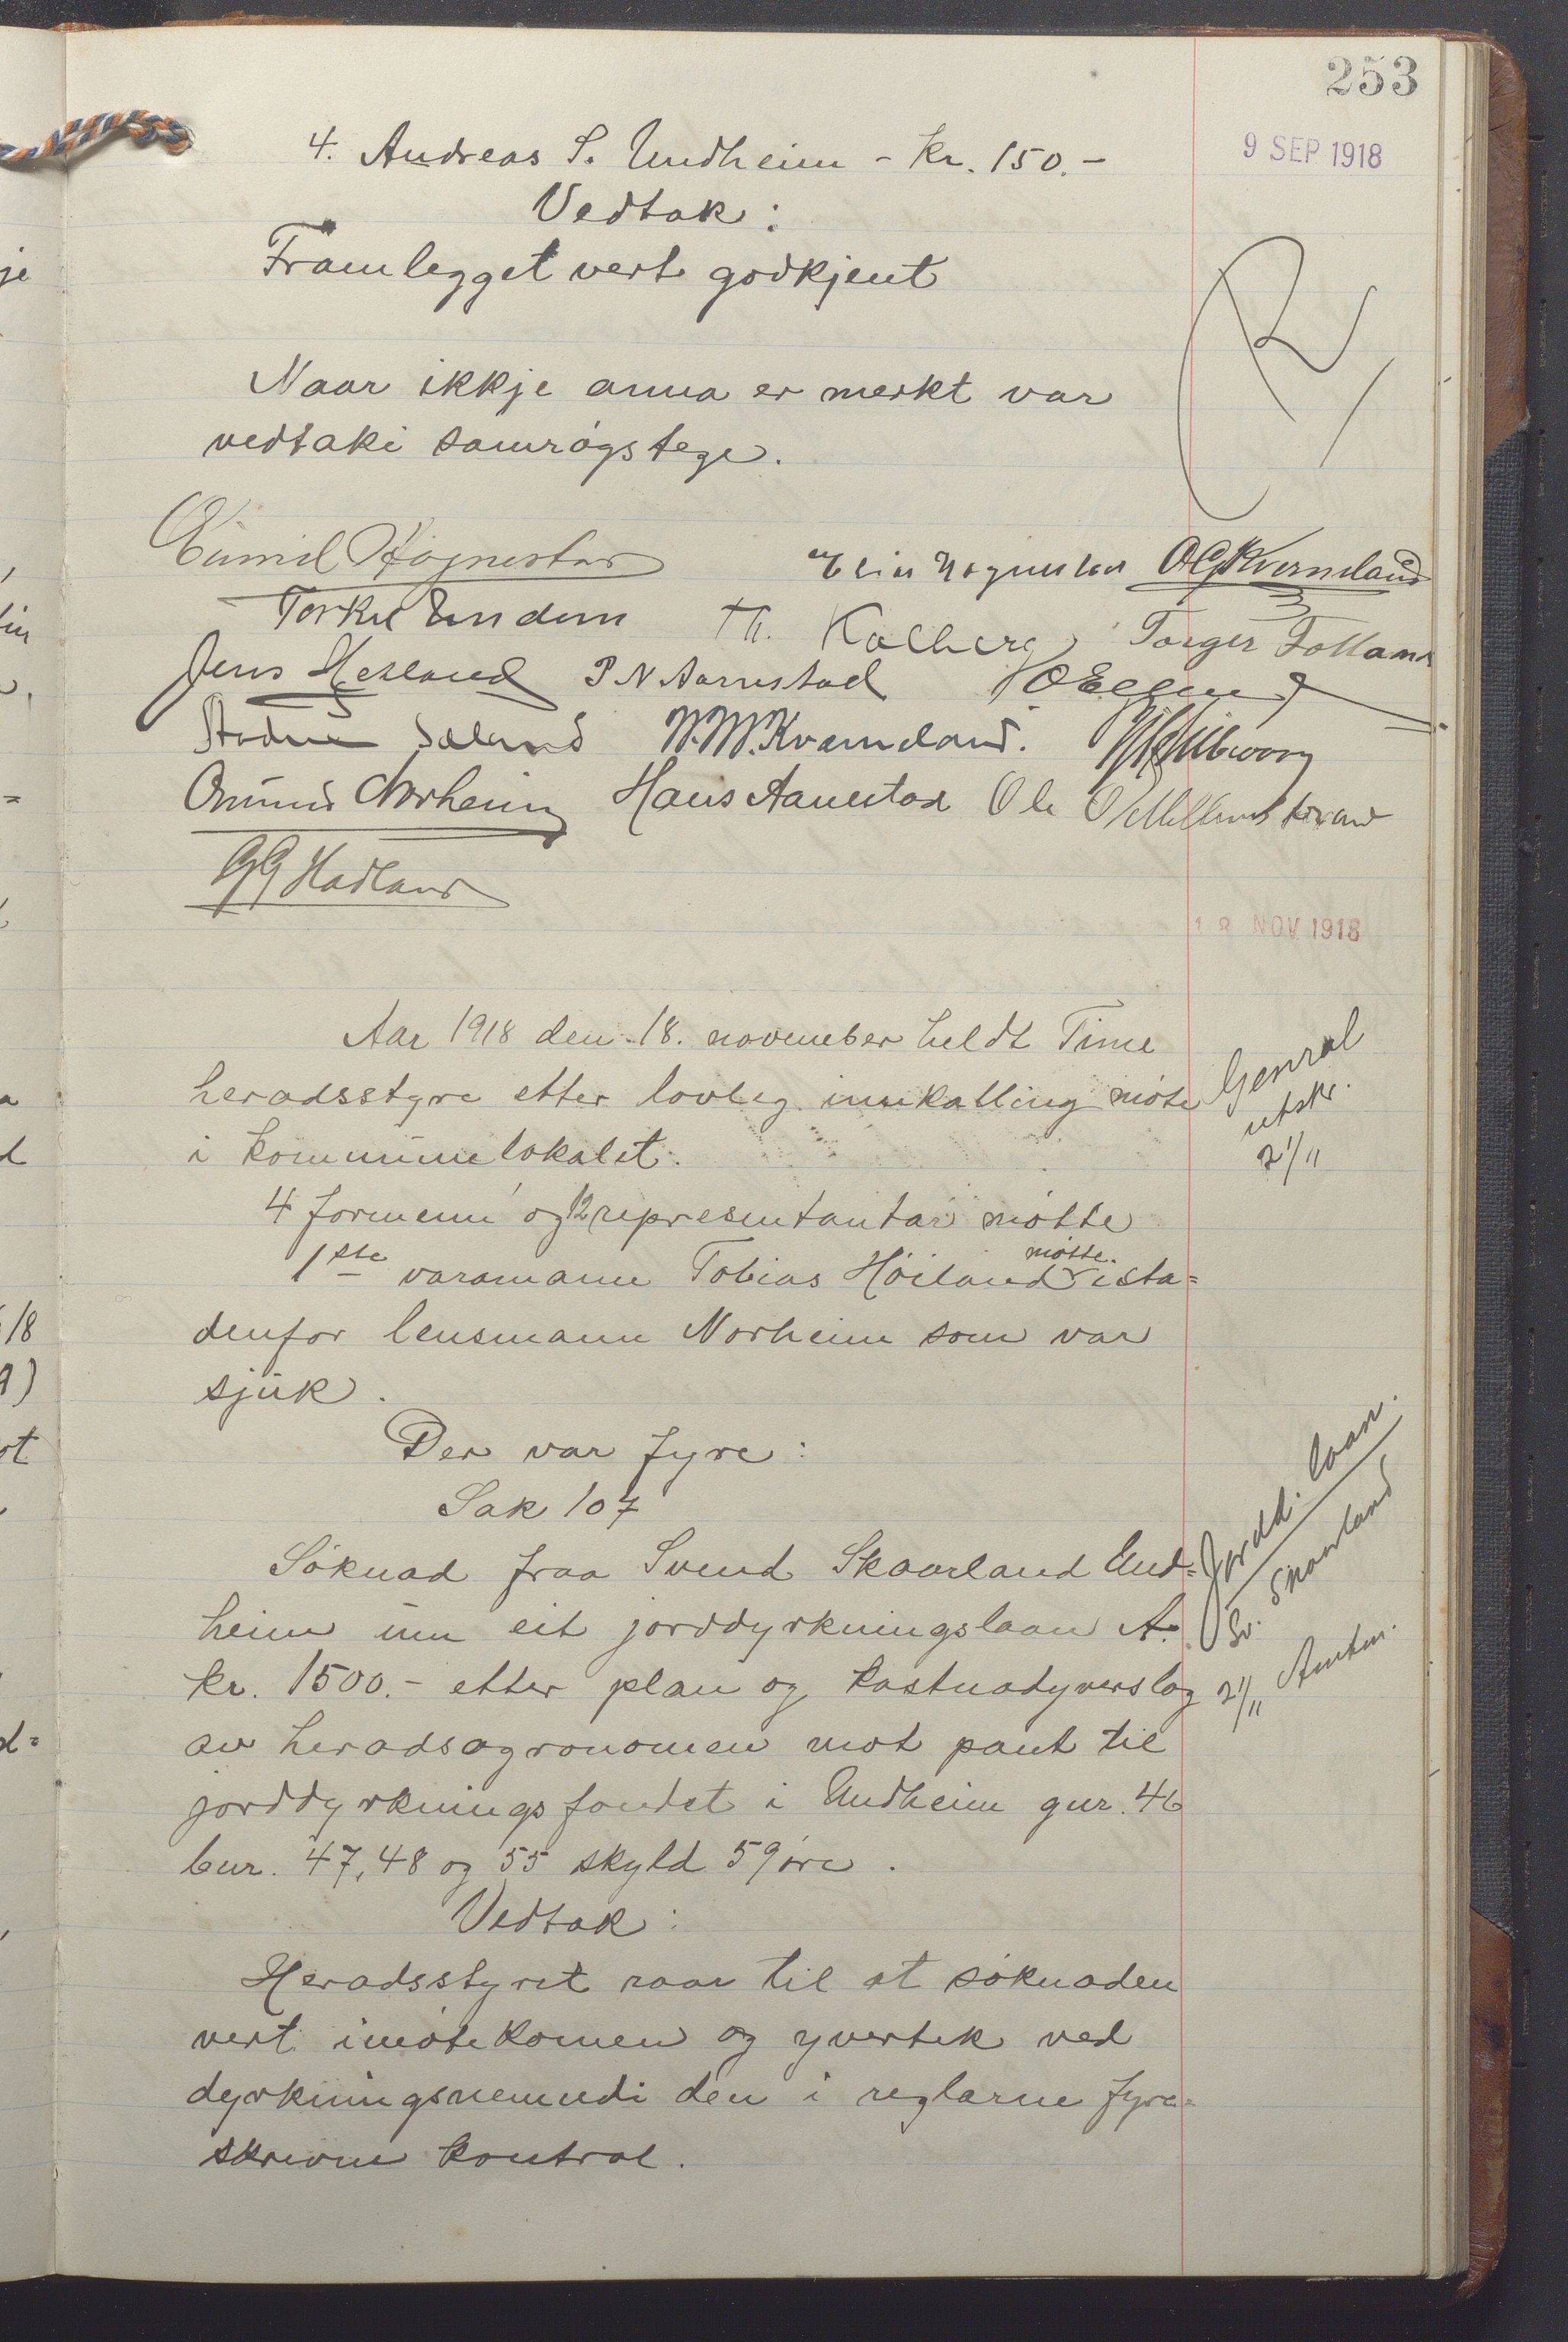 253
9 SEP 1918
4. Andreas S. Undheim - kr. 150.-
Vedtak:
Framlegget vert godkjent
Naar ikkje anna er merkt var
vedtaki samrøgstege.
Eimil Høgnestad
O G Kverneland
Torkel Undem Th. Kolberg Torger Fotland
Jens Hetland P N Aarrestad O Eggen
W. W. Kverneland.
Norheim Hans Aanestad Ole
G G Hadland
18 NOV 1918
Aar 1918 den 18. november heldt Time
heradsstyre etter lovleg innkalling møte
i kommunelokalet.
General
utskr.
21/11
4 formenn og 12 representantar møtte
1ste varamann Tobias Høiland møtte ista=
denfor lensmann Norheim som var
sjuk.
Der var fyre:
Sak 107
Søknad fraa Svend Skaarland Und=
heim um eit jorddyrkningslaan A.
kr. 1500.- etter plan og kostnadyverslag
av heradsagronomen mot pant til
jorddyrkningsfondet i Undheim gnr. 46
bnr. 47, 48 og 55 skyld 59 øre.
Jordd. laan.
Sv. Skaarland
21/11 Amtm.
Vedtak:
Heradsstyret raar til at søknaden
vert imøtekomen og yvertek ved
dyrkningsnemndi den i reglarne fyre=
skrevne kontrol.